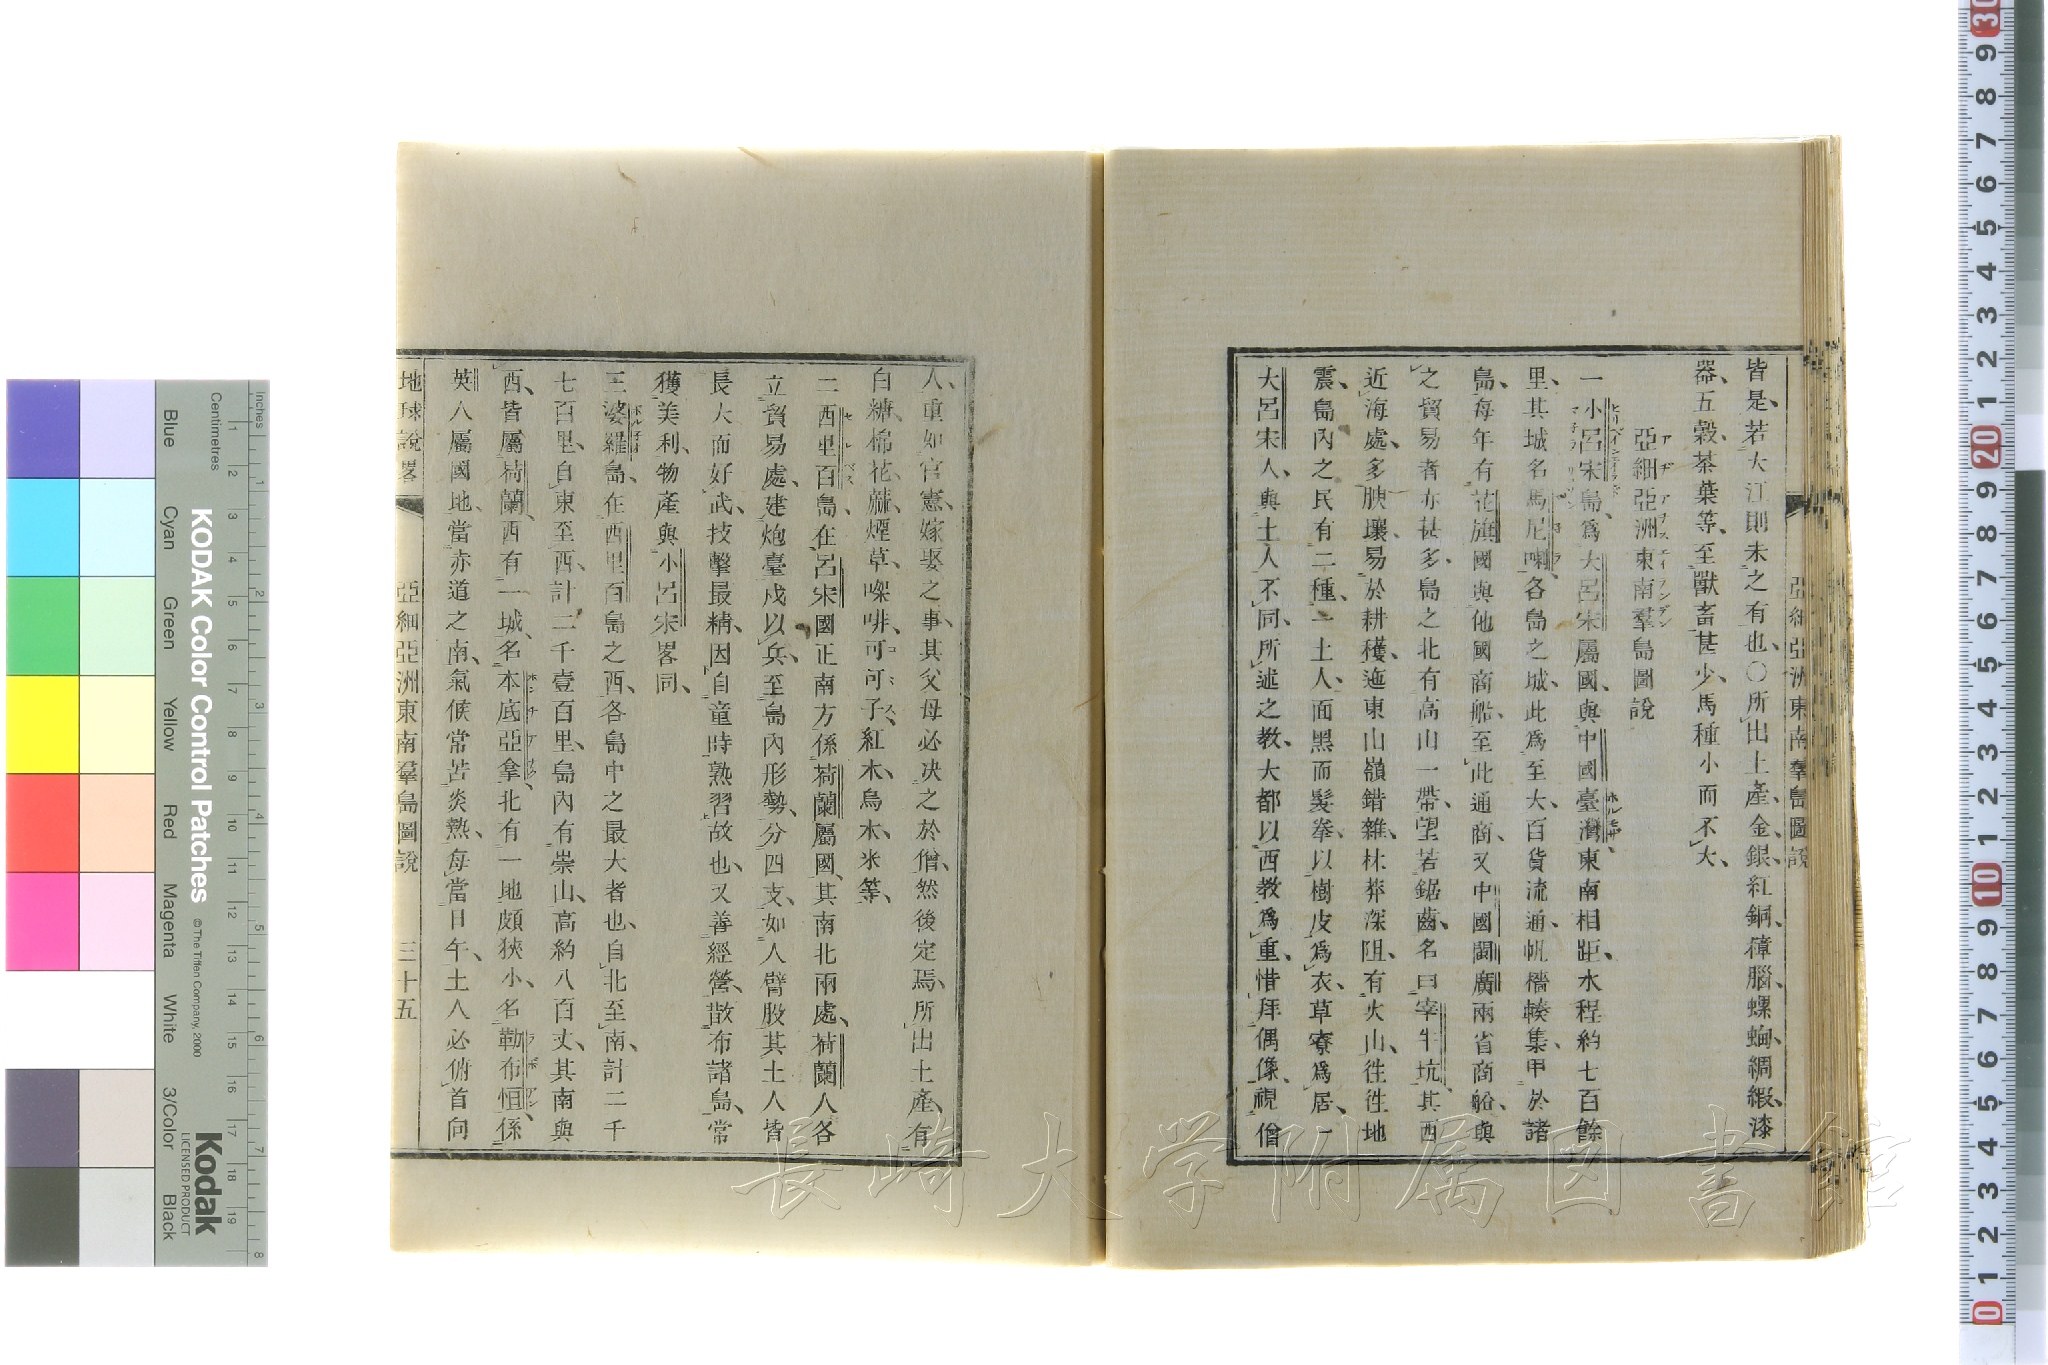 皆是、若大江則未之有也、〇所出土產、金、銀、紅銅、樟腦、螺蜔、綢緞、漆
器、五穀、茶葉等、至獸畜甚少、馬種小而不大、
亞細亞洲東南羣島圖說
一小呂宋島、爲大呂宋屬國、與中國臺灣、東南相距、水程約七百餘
里、其城名馬尼喇、各島之城、此爲至大、百貨流通、帆檣輳集、甲於諸
島、每年有花旗國與他國商船、至此通商、又中國閩廣兩省商船、與
之貿易者亦甚多、島之北有高山一帶、望若鋸齒、名曰宰牛坑、其西
近海處、多腴壤、易於耕穫、迤東山嶺錯雜、林莽深阻、有火山、徃徃地
震、島內之民有二種、一土人、面黑而髮拳、以樹皮爲衣、草寮爲居、一
大呂宋人、與土人不同、所述之教、大都以西教爲重、惜拜偶像、視僧
亞細亞洲東南羣島圖說
人、重如官憲、嫁娶之事、其父母必决之於僧、然後定焉、所出土產、有
白糖、棉花、蔴、煙草、㗎啡、可可子、紅木、烏木、米等、
二西里百島、在呂宋國正南方、係荷蘭屬國、其南北兩處、荷蘭人各
立貿易處、建炮臺、戍以兵、至島內形勢、分四支、如人臂股、其土人皆
長大而好武、技擊最精、因自童時熟習故也、又善經營、散布諸島、常
獲美利、物產與小呂宋畧同、
三婆羅島、在西里百島之西、各島中之最大者也、自北至南、計二千
七百里、自東至西、計二千壹百里、島內有崇山、高約八百丈、其南與
西、皆屬荷蘭、西有一城、名本底亞拿、北有一地頗狹小、名勒布恒、係
英人屬國、地當赤道之南、氣候常苦炎熱、每當日午、土人必俯首向
地球說畧
亞細亞洲東南羣島圖說
三十五
長崎大学附属図書館
KODAK Color Control Patches
© The Tiffen Company, 2000
Kodak
LICENSED PRODUCT
Inches
Centimetres
Blue
Cyan
Green
Yellow
Red
Magenta
White
3/Color
Black